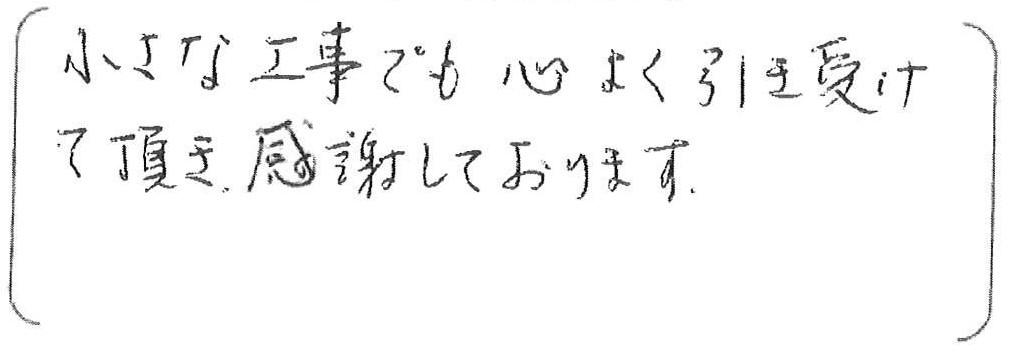 小さな工事でも心よく引き受け
て頂き、感謝しております。